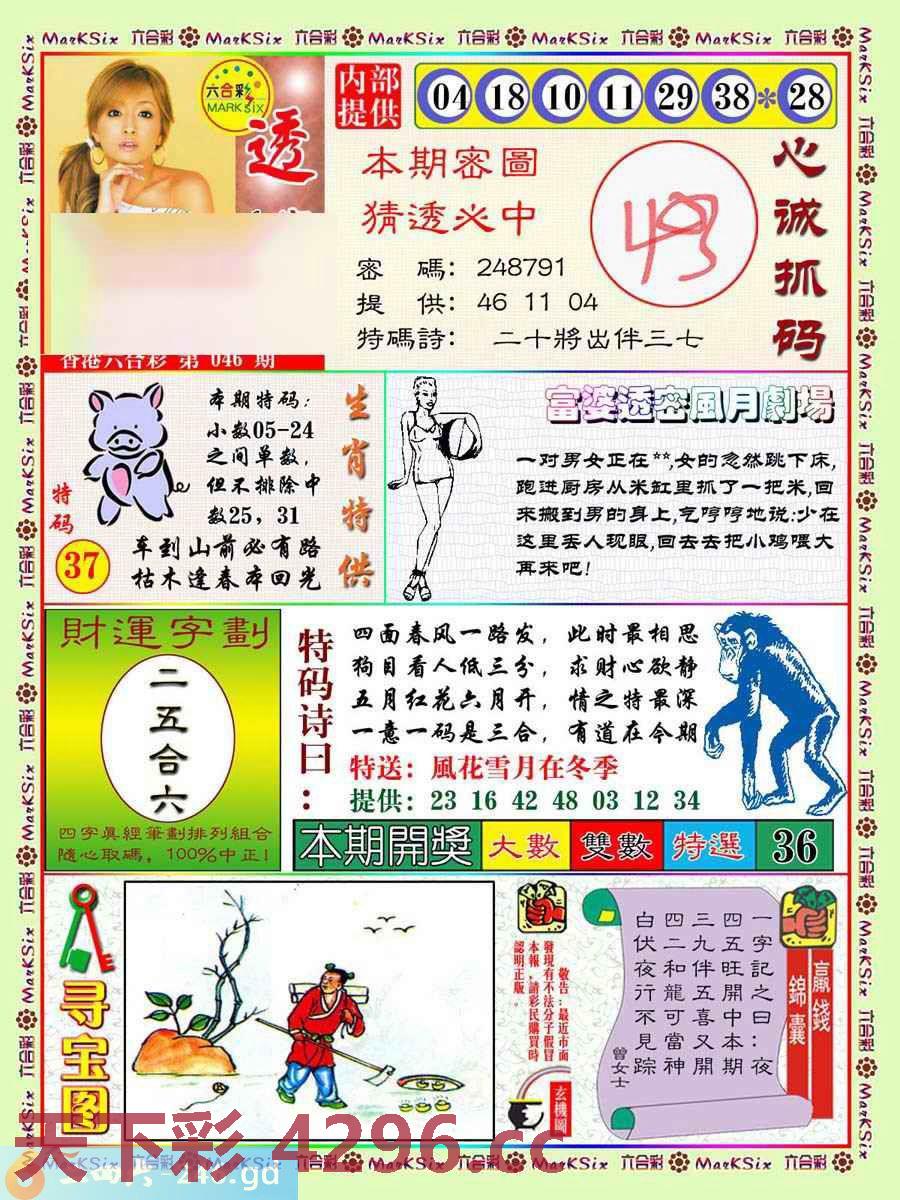 MarKSix 六合彩 MarKSix 六合彩 MarKSix 六合彩 MarKSix 六合彩 MarKSix 六合彩
六合彩
MARK SIX
透
内部
提供
04 18 10 11 29 38 * 28
本期密圖
猜透必中
密 碼: 248791
提 供: 46 11 04
特碼詩: 二十將出伴三七
49
心诚抓码
香港六合彩 第 046 期
本期特码:
小数05-24
之间单数,
但不排除中
数25, 31
车到山前必有路
枯木逢春本回光
特码
37
生肖特供
富婆透密風月劇場
一对男女正在**,女的忽然跳下床,
跑进厨房从米缸里抓了一把米,回
来搬到男的身上,气哼哼地说:少在
这里丢人现眼,回去去把小鸡喂大
再来吧!
財運字劃
二五合六
四字眞經筆劃排列組合
隨心取碼, 100%中正!
特码诗曰:
四面春风一路发, 此时最相思
狗目看人低三分, 求财心欲静
五月红花六月开, 情之特最深
一意一码是三合, 有道在今期
特送: 風花雪月在冬季
提供: 23 16 42 48 03 12 34
本期開獎 大數 雙數 特選 36
寻宝图
敬告:最近市面
發現有不法分子假冒
本報,請彩民購買時
認明正版。
玄機圖
一字記之曰:夜
四五旺開中本期
三九伴五喜又開
四二和龍可當神
白伏夜行不見踪
曾女士
贏錢
錦囊
天下彩 4296.cc
MarKSix 六合彩 MarKSix 六合彩 MarKSix 六合彩 MarKSix 六合彩